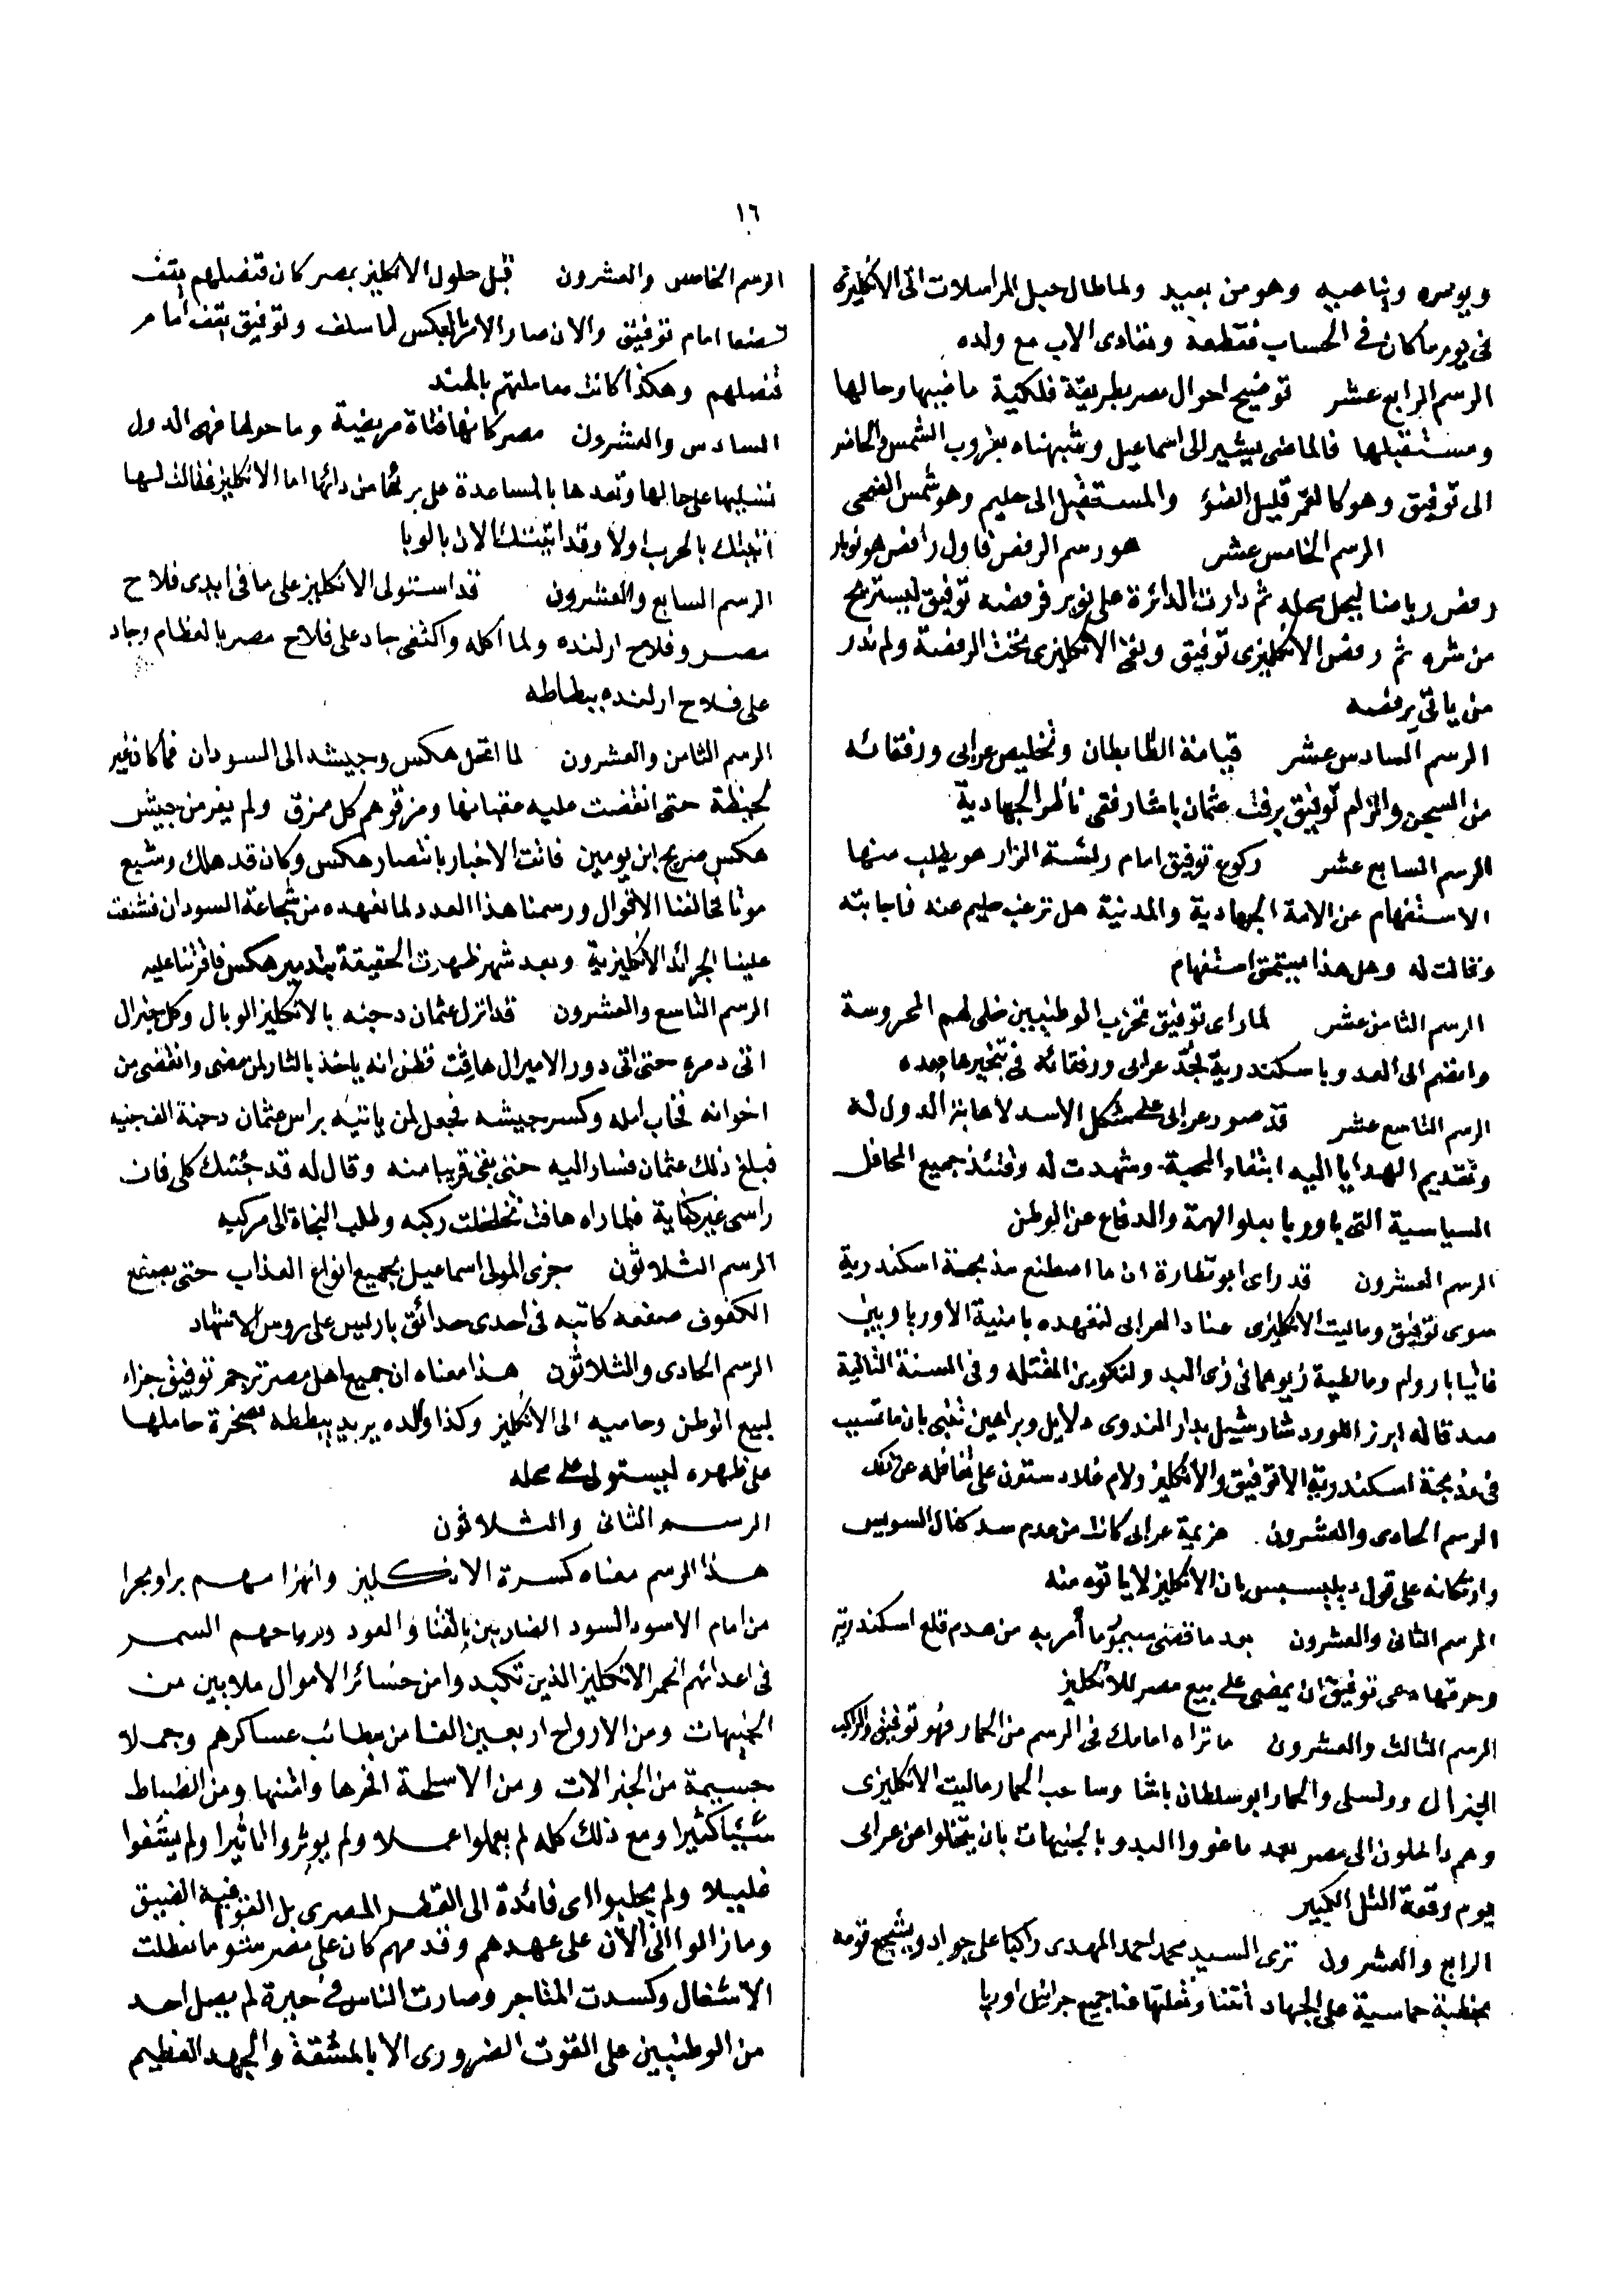 ١٦
ويوسره ويناصبه وهو من بعيد ولما طال حبل المراسلات اتى الانكليزى
فى يوم ما كان فى الحساب فقطعه وتفادى الاب مع ولده
الرسم الرابع عشر توضيح احوال مصر بطريقة فلكية ماضيها وحالها
ومستقبلها فالماضى يشير الى اسماعيل وشبهناه بغروب الشمس والحاضر
الى توفيق وهو كالقمر قليل الضؤ والمستقبل الى حليم وهو شمس الضحى
الرسم الخامس عشر هو رسم الرفص فاول رافص هو نوبار
رفص رياضا ليحل محله ثم دارت الدائرة على نوبر فرفصه توفيق ليستريح
من شره ثم رفص الانكليزى توفيق وبقى الانكليزى تحت الرفصة ولم ندر
من ياتى يرفصه
الرسم السادس عشر قيامة الظابطان وتخليص عرابى ورفقائه
من السجن والزام توفيق برفت عثمان باشا رفقى ناظر الجهادية
الرسم السابع عشر ركوع توفيق امام ريئسة الزار هو يطلب منها
الاستفهام عن الامة الجهادية والمدنية هل ترغب حليم عنه فاجابته
وقالت له وهل هذا يستحق استفهام
الرسم الثامن عشر لما راى توفيق تحزب الوطنيين خلى لهم المحروسة
وانضم الى العدو باسكندرية لجد عرابى ورفقائه فى تحيرها بعده
الرسم التاسع عشر قد صور عرابى على شكل الاسد لاهابة الدول له
وتقديم الهدايا اليه ابتغاء المحبة وشهدت له وقتئذ جميع المحافل
السياسية التى باوربا بعلو الهمة والدفاع عن الوطن
الرسم العشرون قد راى ابو نظارة ان ما اصطنع مذبحة اسكندرية
سوى توفيق وماليت الانكليزى عنادا لعرابى لتعهده بامنية الاورباويين
فاتيا باروام ومالطية زيوهما فى زى البدو لتكوين المقتله وفى السنة الثالية
صدقا له ابرز اللورد شارشيل بدار الندوى دلايل وبراهين تنبى بان ما تسبب
فى مذبحة اسكندرية الا توفيق والانكليز ولام غلادستون على تغافله عن ذلك
الرسم الحادى والعشرون هزيمة عرابى كانت من عدم سد كنال السويس
واركانه على قول ديليسبس بان الانكليز لا ياتوه منه
الرسم الثانى والعشرون بعد ما قضى سيمور ما أمر به من هدم قلع اسكندرية
وحرقها دعى توفيق ان يمضى على بيع مصر للانكليز
الرسم الثالث والعشرون ما تراه امامك فى الرسم من الحمار فهو توفيق والراكب
الجنرال وولسلى والحمار ابو سلطان باشا وساحب الحمار ماليت الانكليزى
وهم داخلون الى مصر بعد ما غووا البدو بالجنيهات بان يتخلوا عن عرابى
يوم وقعة التل الكبير
الرابع والعشرون ترى السيد محمد احمد المهدى راكبا على جواد ويشجع قومه
بخطبة حماسية على الجهاد أتتنا ونقلتها عنا جميع جرانيل اوربا
الرسم الخامس والعشرون قبل حلول الانكليز بمصر كان قنصلهم يقف
امام توفيق والان صار الامر بالعكس لما سلف وتوفيق يقف أمام
قنصلهم وهكذا كانت معاملتهم بالهند
السادس والعشرون مصر كانها فتاة مريضية وما حولها فهى الدول
تسليها على حالها وتعدها بالمساعدة على برئها من دائها اما الانكليز فقالت لها
اتيتك بالحرب اولا وقد اتيتك الان بالوبا
الرسم السابع والعشرون قد استولى الانكليز على ما فى ايدى فلاح
مصر وفلاح ارلنده ولما أكله واكتفى جاد على فلاح مصر بالعظام وجاد
على فلاح ارلنده ببطاطه
الرسم الثامن والعشرون لما اتى هكس وجيشه الى السودان فما كان غير
لحظة حتى انقضت عليه عقبانها ومزقوهم كل ممزق ولم يفر من جيش
هكس صريخ ابن يومين فاتت الاخبار بانتصار هكس وكان قد هلك وشبع
موتا فخالفنا الاقوال ورسمنا هذا العدد لما نعهده من شجاعة السودان فشنعت
علينا الجرائد الانكليزية وبعد شهر ظهرت الحقيقة بتدمير هكس فاقرتنا عليه
الرسم التاسع والعشرون قد انزل عثمان دجنه بالانكليز الوبال وكل جنرال
اتى دمره حتى اتى دور الاميرال هافت فظن انه ياخذ بالثار لمن مضى وانقضى من
اخوانه فخاب امله وكسر جيشه فجعل لمن ياتيه براس عثمان دجنة الف جنيه
فبلغ ذلك عثمان فسار اليه حتى بقى قريبا منه وقال له قد جئتك كلى فان
راسى غير كفاية فلما راه هافت تخلخلت ركبه وطلب النجاة الى مركبه
الرسم الثلاثون جزى المولى اسماعيل بجميع انواع العذاب حتى بصقع
الكفوف صفعه كاتبه فى احدى حدائق باريس على روس الاشهاد
الرسم الحادى والثلاثون هذا معناه ان جميع اهل مصر ترجم توفيق جزاء
لبيع الوطن وحاميه الى الانكليز وكذا والده يريد يبططه بصخرة حاملها
على ظهره ليستولى على محله
الرسم الثانى والثلاثون
هذا الرسم معناه كسرة الانكليز وانهزامهم برا وبحرا
من امام الاسود السود الضاربين بالقنا والعود ورماحهم السمر
فى اعدائهم الحمر الانكليز الذين تكبدوا من خسائر الاموال ملايين من
الجنيهات ومن الارواح اربعين الفا من عساكرهم وجملا
جسيمة من الجنرالات ومن الاسلحة افخرها واثمنها ومن الضباط
شيئا كثيرا ومع ذلك كله لم يعملوا عملا ولم يوثروا تاثيرا ولم يشفوا
غليلا ولم يجلبوا اى فائدة الى القطر المصرى بل القوه فى الضيق
وما زالوا الى الآن على عهدهم وقدومهم كان على مصر مشوما تعطلت
الاشغال وكسدت المتاجر وصارت الناس فى حيرة لم يحصل احد
من الوطنيين على القوت الضرورى الا بالمشقة والجهد العظيم